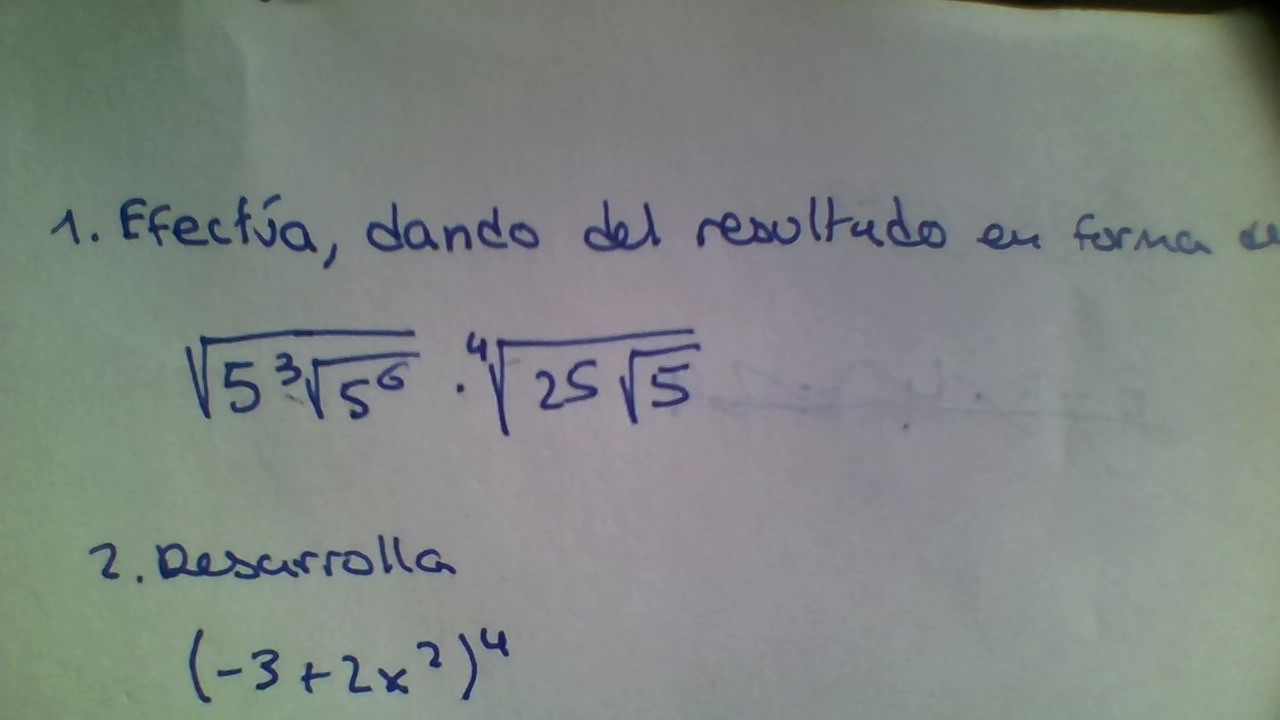 1. Efectúa, dando del resultado en forma de
√(5∛(5⁶)) · ⁴√(25√5)
2. Desarrolla
(-3+2x²)⁴